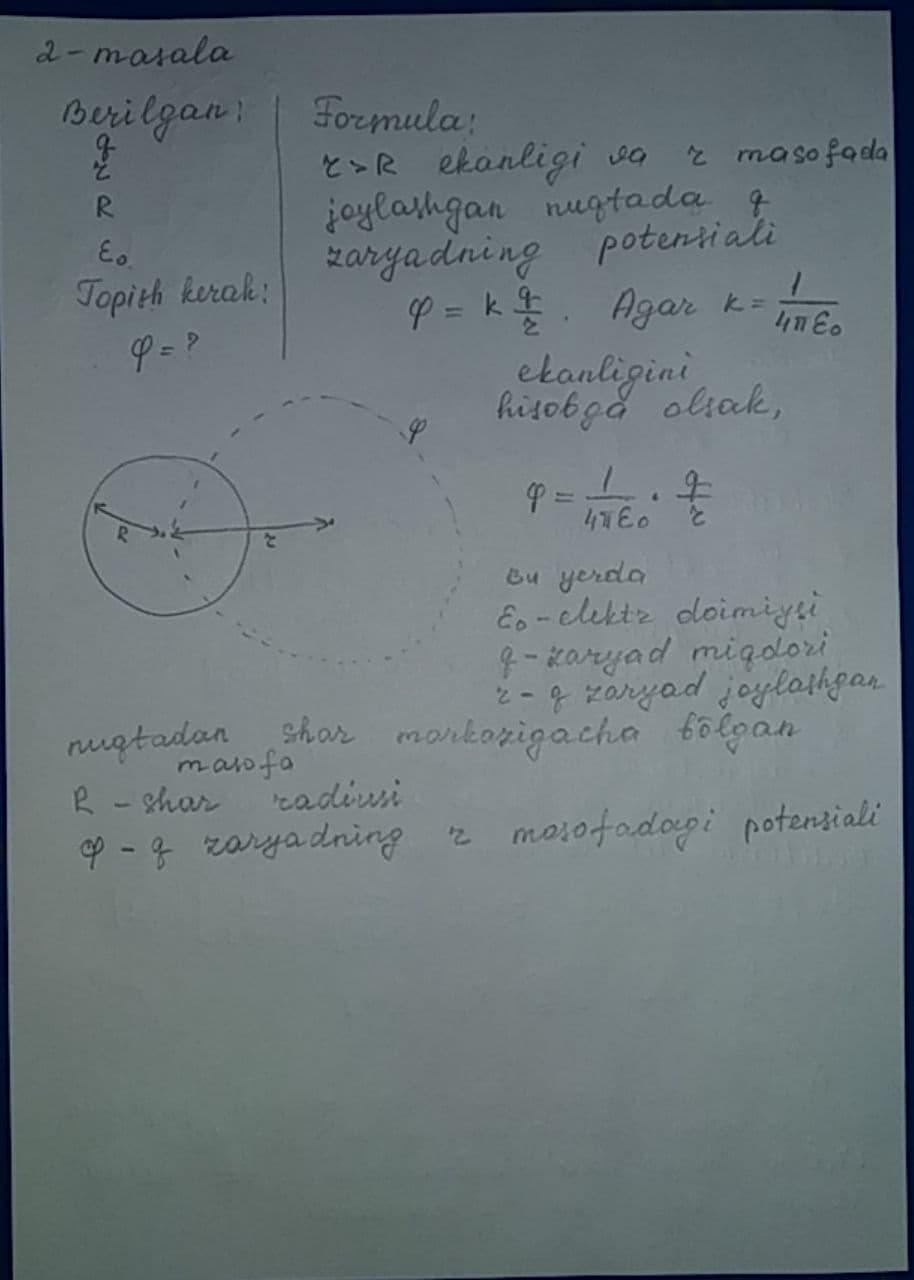 2-masala
Berilgan:
q
r
R
ε₀
Topish kerak:
φ = ?
Formula:
r>R ekanligi va r masofada
joylashgan nuqtada q
zaryadning potensiali
φ = k q/r . Agar k = 1/4πε₀
ekanligini
hisobga olsak,
φ
R
r
φ = 1/4πε₀ · q/r
Bu yerda
ε₀ - elektr doimiysi
q - zaryad miqdori
r - q zaryad joylashgan
nuqtadan shar markazigacha bōlgan
masofa
R - shar radiusi
φ - q zaryadning r masofadagi potensiali